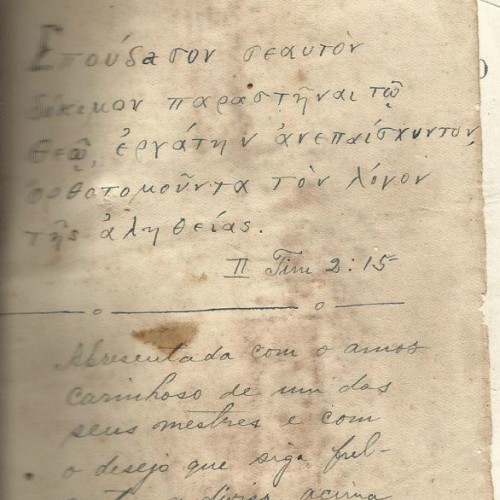 Σπούδασον σεαυτὸν
δόκιμον παραστῆναι τῷ
θεῷ, ἐργάτην ἀνεπαίσχυντον,
ὀρθοτομοῦντα τὸν λόγον
τῆς ἀληθείας.
II Tim 2:15
Apresentada com o amor
carinhoso de um dos
seus mestres e com
o desejo que siga fiel-
a divisa acima